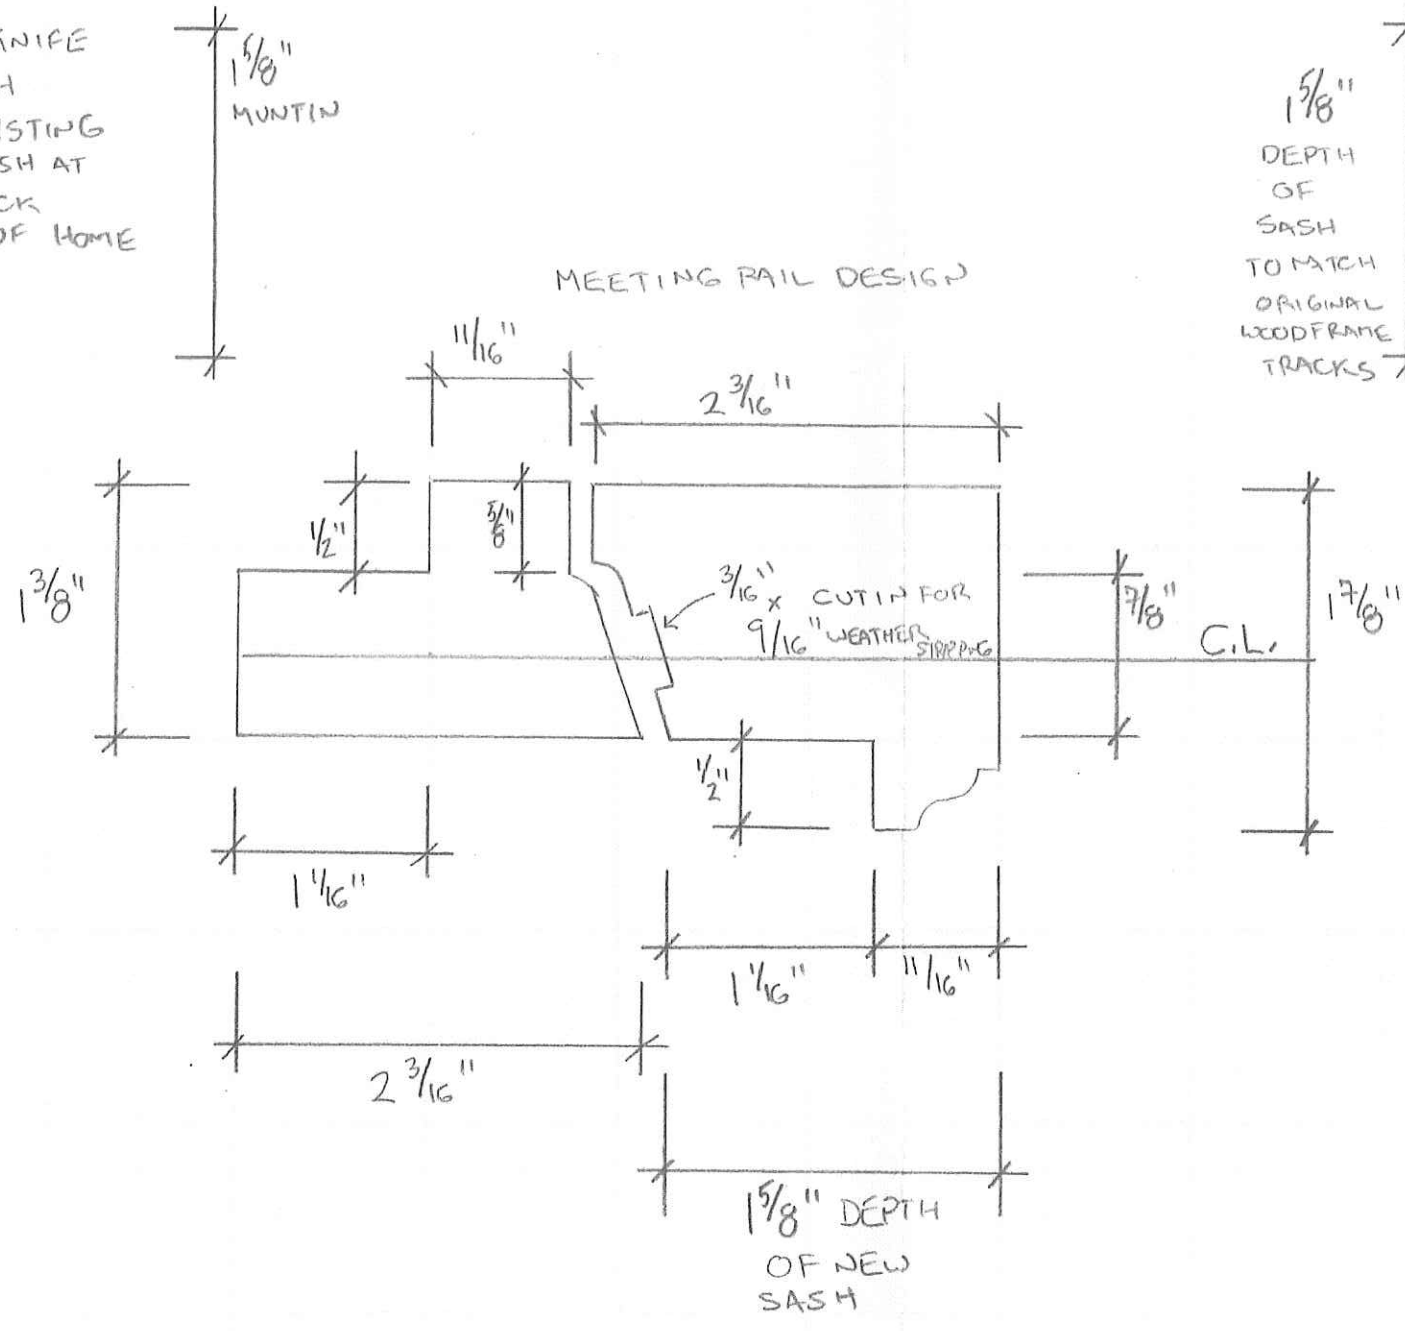 KNIFE
H
ISTING
SH AT
CK
OF HOME
1 5/8"
MUNTIN
1 5/8"
DEPTH
OF
SASH
TO MATCH
ORIGINAL
WOODFRAME
TRACKS
MEETING RAIL DESIGN
11/16"
2 3/16"
1/2"
5/8"
1 3/8"
3/16" x
9/16"
CUT IN FOR
WEATHER
STRIPPING
7/8"
C.L.
1 7/8"
1/2"
1 1/16"
1 1/16"
11/16"
2 3/16"
1 5/8" DEPTH
OF NEW
SASH